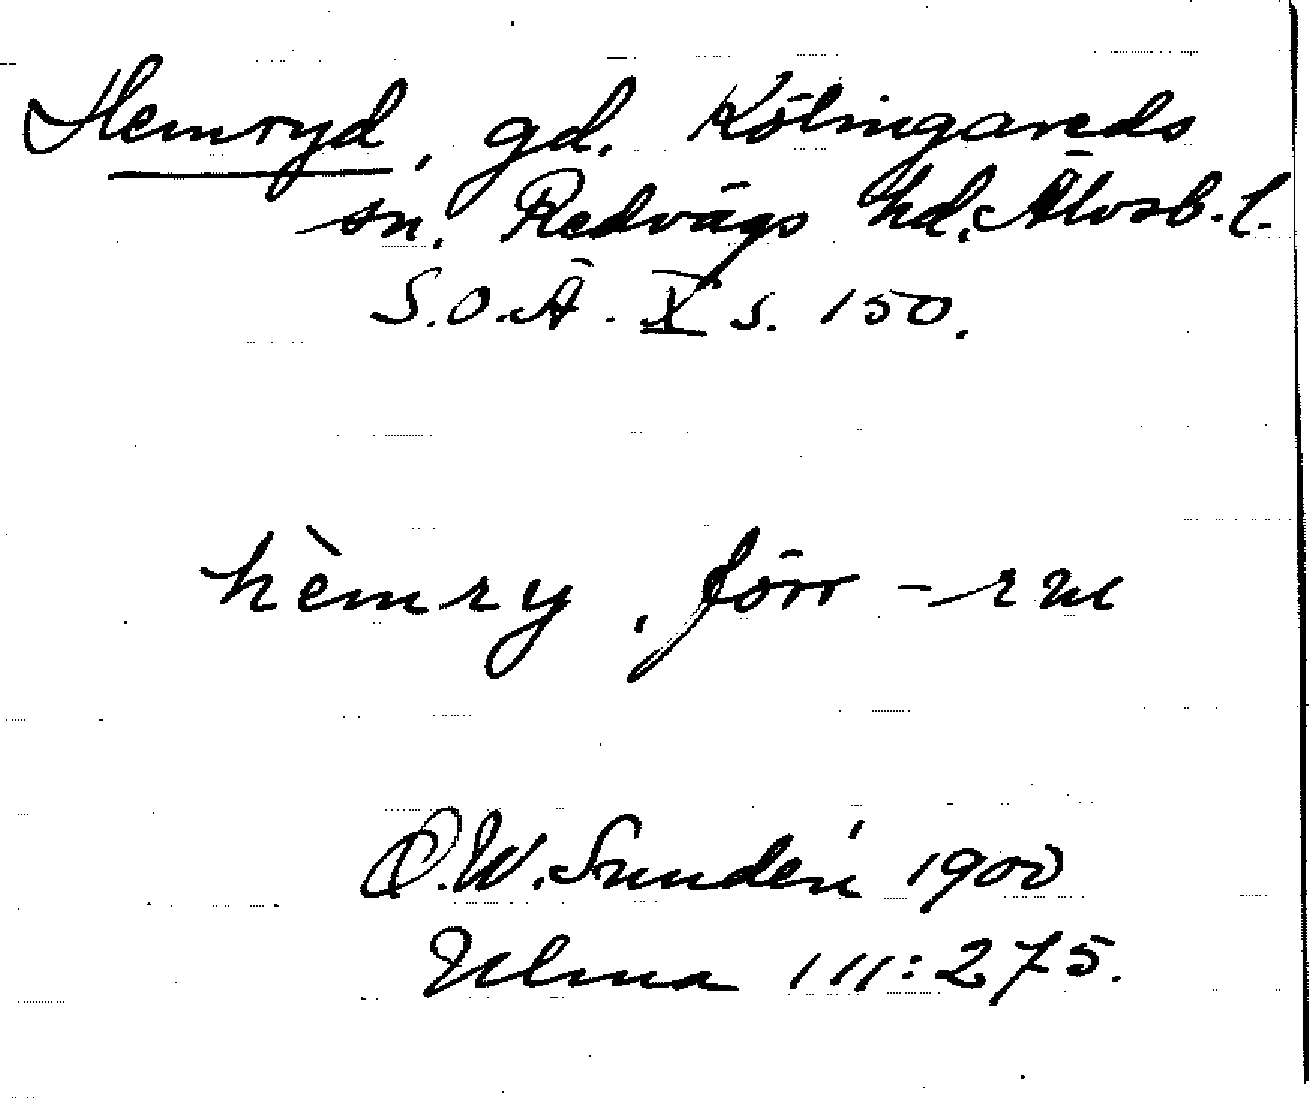 Hemryd, gd. Kölingareds
sn. Redvägs hd. Älvsb. l.
S.O.Ä. X s. 150.
hèmry, förr -rm
D.W. Sundén 1900
Ulma 111:275.